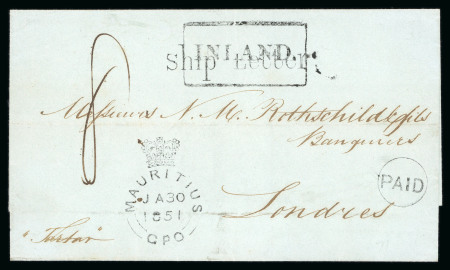 INLAND.
Ship Letter
8
Messieurs N. M. Rothschild & fils
Banquiers
Londres
PAID
MAURITIUS
JA 30
1851
GPO